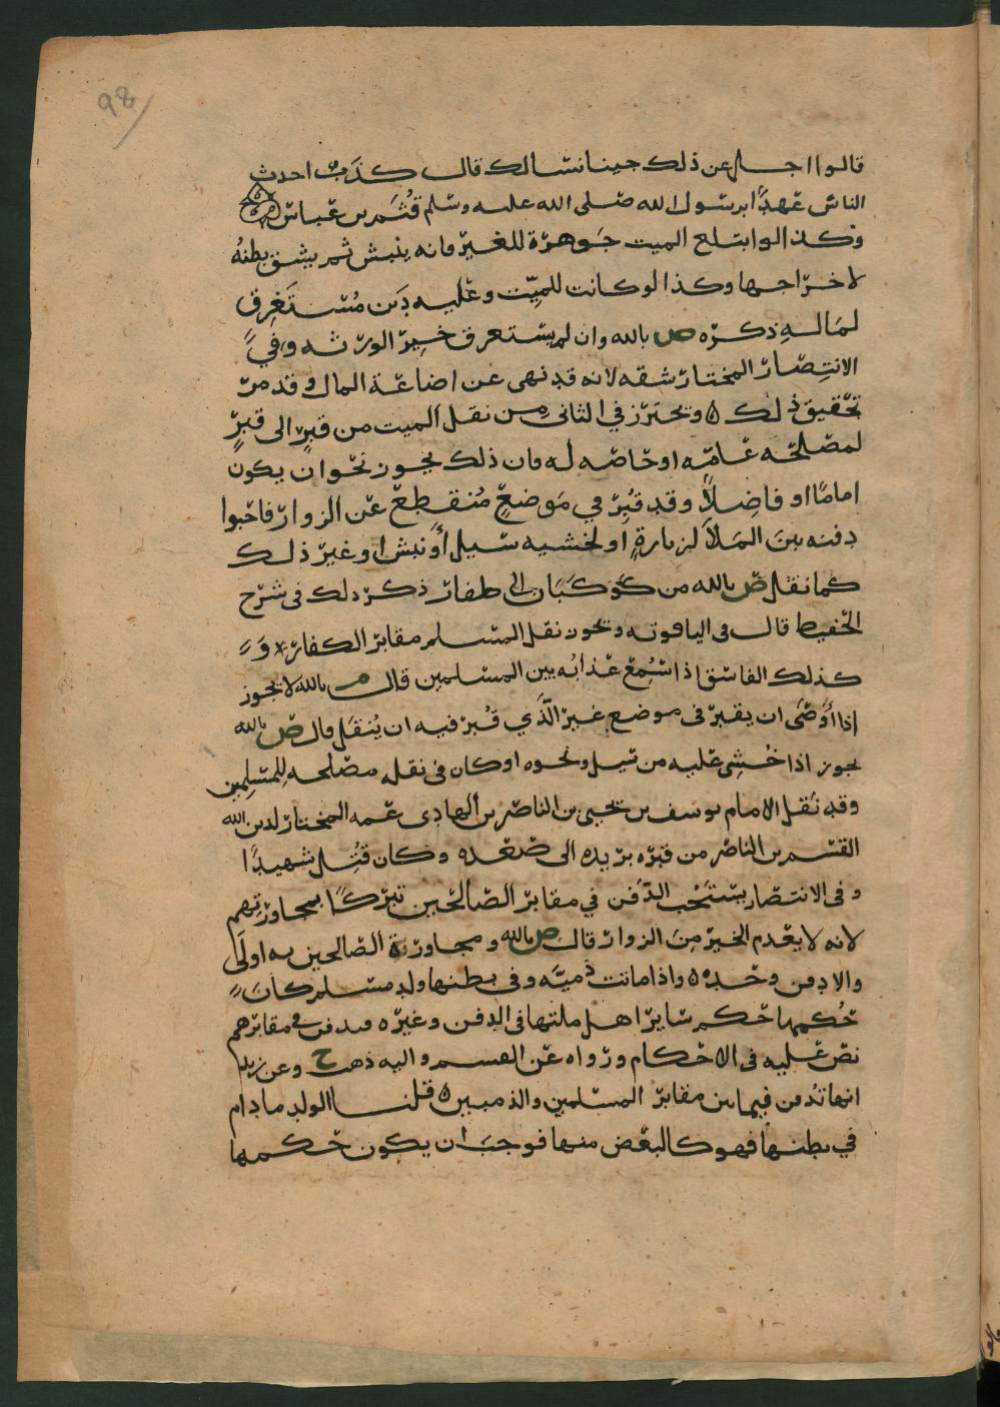 98
قالوا اجل عن ذلك جينا نسالك قال كذب احدث
الناس عهدًا برسول الله صلى الله عليه وسلم قُثَم بن عباس
وكذا لو ابتلع الميت جَوهرة للغير فانه ينبش ثم يشق بطنهُ
لاخراجها وكذا لو كانت للميّت وعليه دَين مُستَغرِق
لمَالهِ ذكره ص بالله وان لم يستغرق خيِر الورثه وفي
الانتِصار المختار شقه لانه قد نهى عن اضاعة المال وقد مر
تحقيق ذلك ه ويحترز في الثاني مِن نقل الميت من قبرٍ الى قبرٍ
لمصلحه عامّه او خاصه له فان ذلك يجوز نحو ان يكون
امامًا او فاضِلاً وقد قُبِر في مَوضعٍ مُنقطع عن الزوار فاحبوا
دفنه بينَ المَلأ لزيارةٍ او لخشيه سيل أو نبش او غير ذلك
كما نقل ص بالله من كوكَبَان الى ظفار ذكر ذلك في شرح
الحفيظ قال في الياقوته ويجوز نقل المسلم مقابر الكفار وَ
كذلك الفاسق اذا سُمِع عَذابُه بين المسلمين قال م بالله لا يجوز
إذا أوصَى ان يقبر في موضع غير الَّذي قُبر فيه ان يُنقَل وقال ص بالله
يجوز اذا خُشِي عليه من سيل ونحوه او كان في نقله مصلحه لِلمسلِمين
وقد نقل الامام يوسف بن يحيى بن الناصر بن الهادى عمه المختار لدين الله
القسم بن الناصر من قبره بريده الى صعده وكان قُتِل شهيدًا
وفى الانتصار يستَحب الدَّفن في مقابر الصالحين تبركًا بمجاورتهم
لانه لا يعدم الخير مِنَ الزوار قال ص بالله ومجاورة الصالحين به اولَى
والا دفن وحده ه واذا ماتت ذميَّه وفى بطنها ولد مسلم كان
حُكمها حكم سائر اهل ملتها في الدفن وغيره فتدفن في مقابرهم
نص عليه في الاحكام ورواه عن القسم واليه ذهب ح وعن زيد
انها تُدفن فيما بين مقابر المسلمين والذميين ه قلنا الولد ما دام
في بطنها فهو كالبعض منها فوجبَ ان يكون حكمها